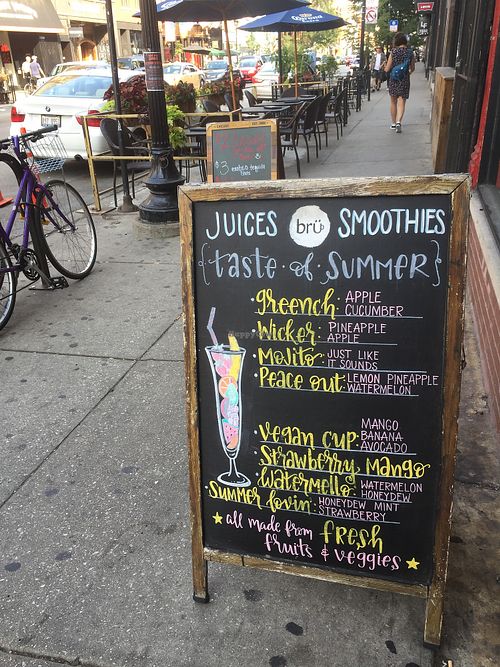 JUICES brü SMOOTHIES
{taste of SUMMER}
• greench: APPLE
CUCUMBER
• Wicker: PINEAPPLE
APPLE
• Mojito: JUST LIKE
IT SOUNDS
• Peace out: LEMON PINEAPPLE
WATERMELON
• Vegan cup: MANGO
BANANA
AVOCADO
• Strawberry Mango
• Watermello: WATERMELON
HONEYDEW
• Summer lovin: HONEYDEW MINT
STRAWBERRY
all made from fresh
fruits & veggies
$3